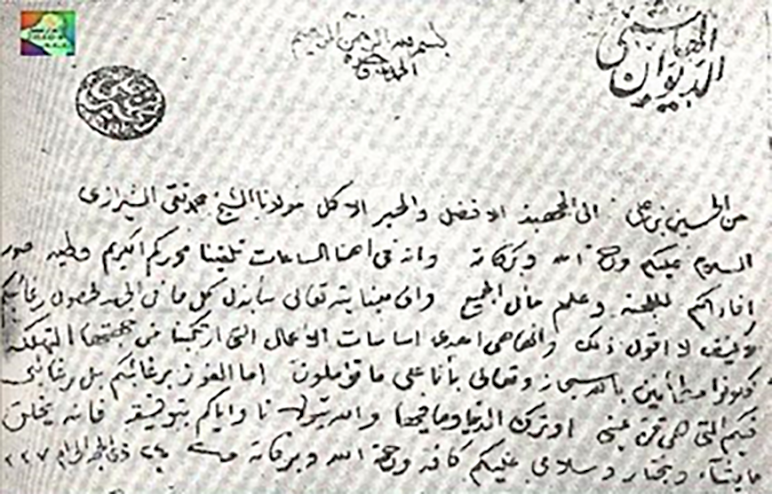 الديوان الهاشمي
بسم الله الرحمن الرحيم
الحمد لله وحده
من الحسين بن علي الى الجهبذ الافضل والحبر الاكمل مولانا الشيخ محمد تقي الشيرازي
السلام عليكم ورحمة الله وبركاته وانه في اهنأ الساعات تلقينا محرركم الكريم وطيه صور
افاداتكم للجنة وعلم مآل الجميع واني بمنايته تعالى سأبذل كل ما في الجهد لحصول رغائبكم
وكيف لا اقول ذلك وانها هي احدى اساسات الاعمال التي ارتكبنا من جهتها التهلكة
فكونوا مطمأنين بالله سبحانه وتعالى بأنا على ما تؤملون اما الفوز برغائبكم بل رغائبي
فيكم التي هي قرة عيني او ترك الدنيا وما فيها والله يتولانا واياكم بتوفيقه فانه يخلق
ما يشاء ويختار وسلامي عليكم كافة ورحمة الله وبركاته ٢٤ ذي الحجة الحرام ٣٣٧